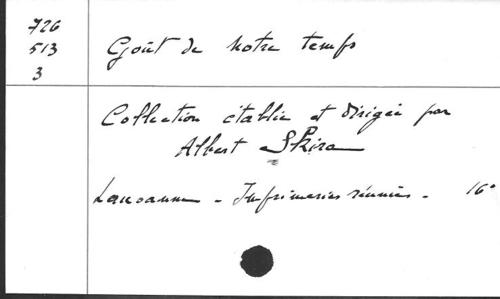 726
513
3
Goût de Notre temps
Collection établie et dirigée par
Albert Skira
Lausanne - Imprimeries réunies - 16°